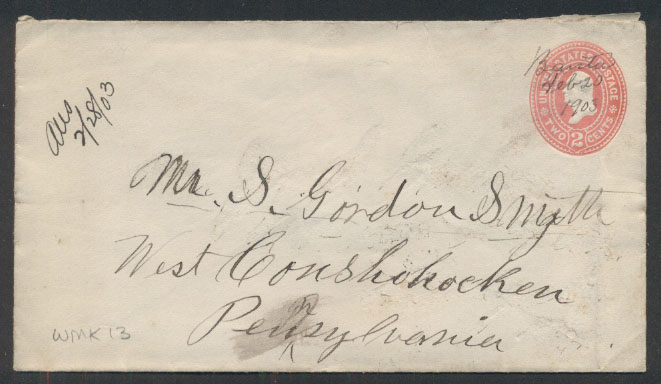 Banta
Feb 20
1903
UNITED STATES POSTAGE
TWO 2 CENTS
Ans
2/28/03
Mr. S. Gordon Smyth
West Conshohocken
Pennsylvania
WMK 13